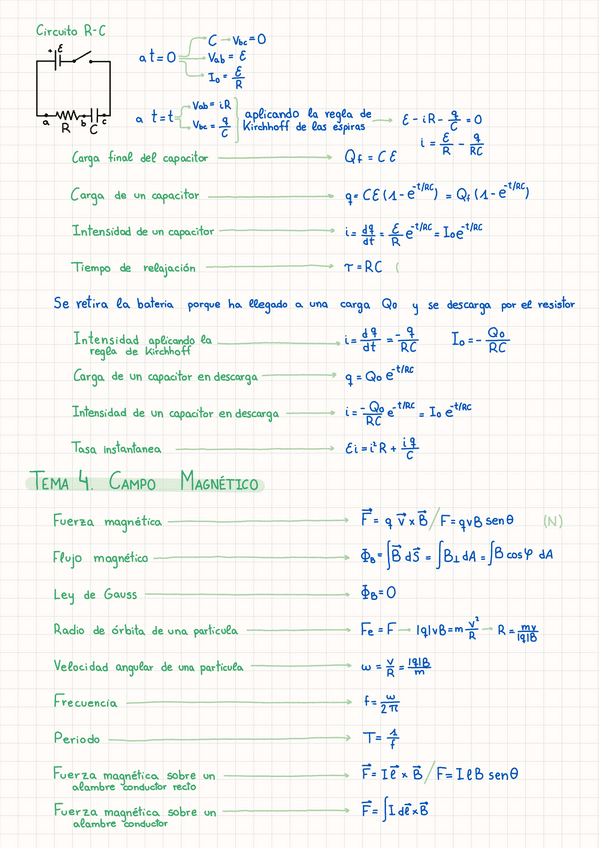 Circuito R-C
ε
a R b C c
a t=0
C → Vbc = 0
Vab = ε
I₀ = ε/R
a t=t
Vab = iR
Vbc = q/C
aplicando la regla de
Kirchhoff de las espiras
ε - iR - q/C = 0
i = ε/R - q/RC
Carga final del capacitor → Qf = Cε
Carga de un capacitor → q = Cε(1-e^-t/RC) = Qf(1-e^-t/RC)
Intensidad de un capacitor → i = dq/dt = ε/R e^-t/RC = I₀e^-t/RC
Tiempo de relajación → τ = RC (
Se retira la bateria porque ha llegado a una carga Q₀ y se descarga por el resistor
Intensidad aplicando la
regla de Kirchhoff → i = dq/dt = -q/RC I₀ = -Q₀/RC
Carga de un capacitor en descarga → q = Q₀ e^-t/RC
Intensidad de un capacitor en descarga → i = -Q₀/RC e^-t/RC = I₀ e^-t/RC
Tasa instantanea → εi = i²R + iq/C
TEMA 4. CAMPO MAGNÉTICO
Fuerza magnética → F⃗ = q v⃗ x B⃗ / F = qvB senθ (N)
Flujo magnético → Φ_B = ∫B⃗ dS⃗ = ∫B⊥ dA = ∫B cosφ dA
Ley de Gauss → Φ_B = 0
Radio de órbita de una particula → Fe = F → |q|vB = m v²/R → R = mv/|q|B
Velocidad angular de una particula → ω = v/R = |q|B/m
Frecuencia → f = ω/2π
Periodo → T = 1/f
Fuerza magnética sobre un
alambre conductor recto → F⃗ = I l⃗ x B⃗ / F = I l B senθ
Fuerza magnética sobre un
alambre conductor → F⃗ = ∫I dl⃗ x B⃗